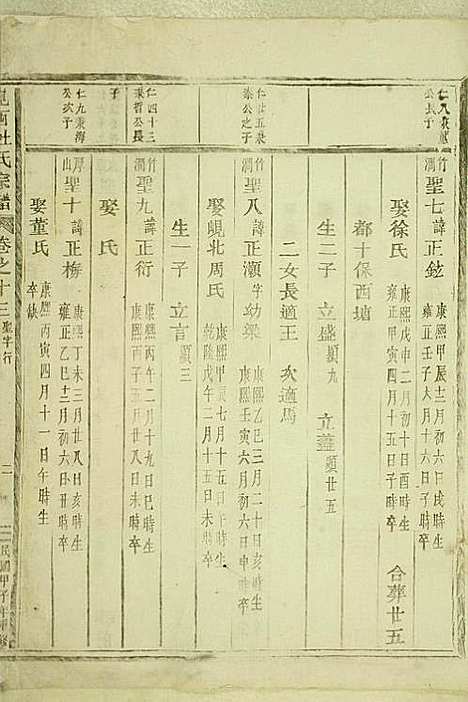 仁八秉盧公長子
竹澗 聖七諱正鉉 康熙甲辰十二月初六日戌時生 雍正壬子六月十六日未時卒
娶徐氏 康熙戊申二月初十日酉時生 雍正甲寅四月十五日子時卒 合葬廿五
都十保西塘
生二子 立盛顯九 立藎顯廿五
二女長適王 次適馬
仁廿五秉 公之子
竹澗 聖八諱正灝字幼梁 康熙乙巳三月二十日亥時生 康熙壬寅六月初六日申時卒
娶峴北周氏 康熙甲寅七月十五日午時生 乾隆戊午二月十五日未時卒
生一子 立言顯三
仁四十三秉晉公長子
竹澗 聖九諱正衍 康熙丙午二月十九日巳時生 康熙丙子五月廿八日未時卒
娶 氏
仁九秉海公次子
厚山 聖十諱正梅 康熙丁未三月廿八日丑時生 雍正乙巳十二月初六日丑時卒
娶董氏 康熙丙寅四月十一日午時生 卒缺
杜氏宗譜 卷之十三 聖字行 二 民國甲子年重修